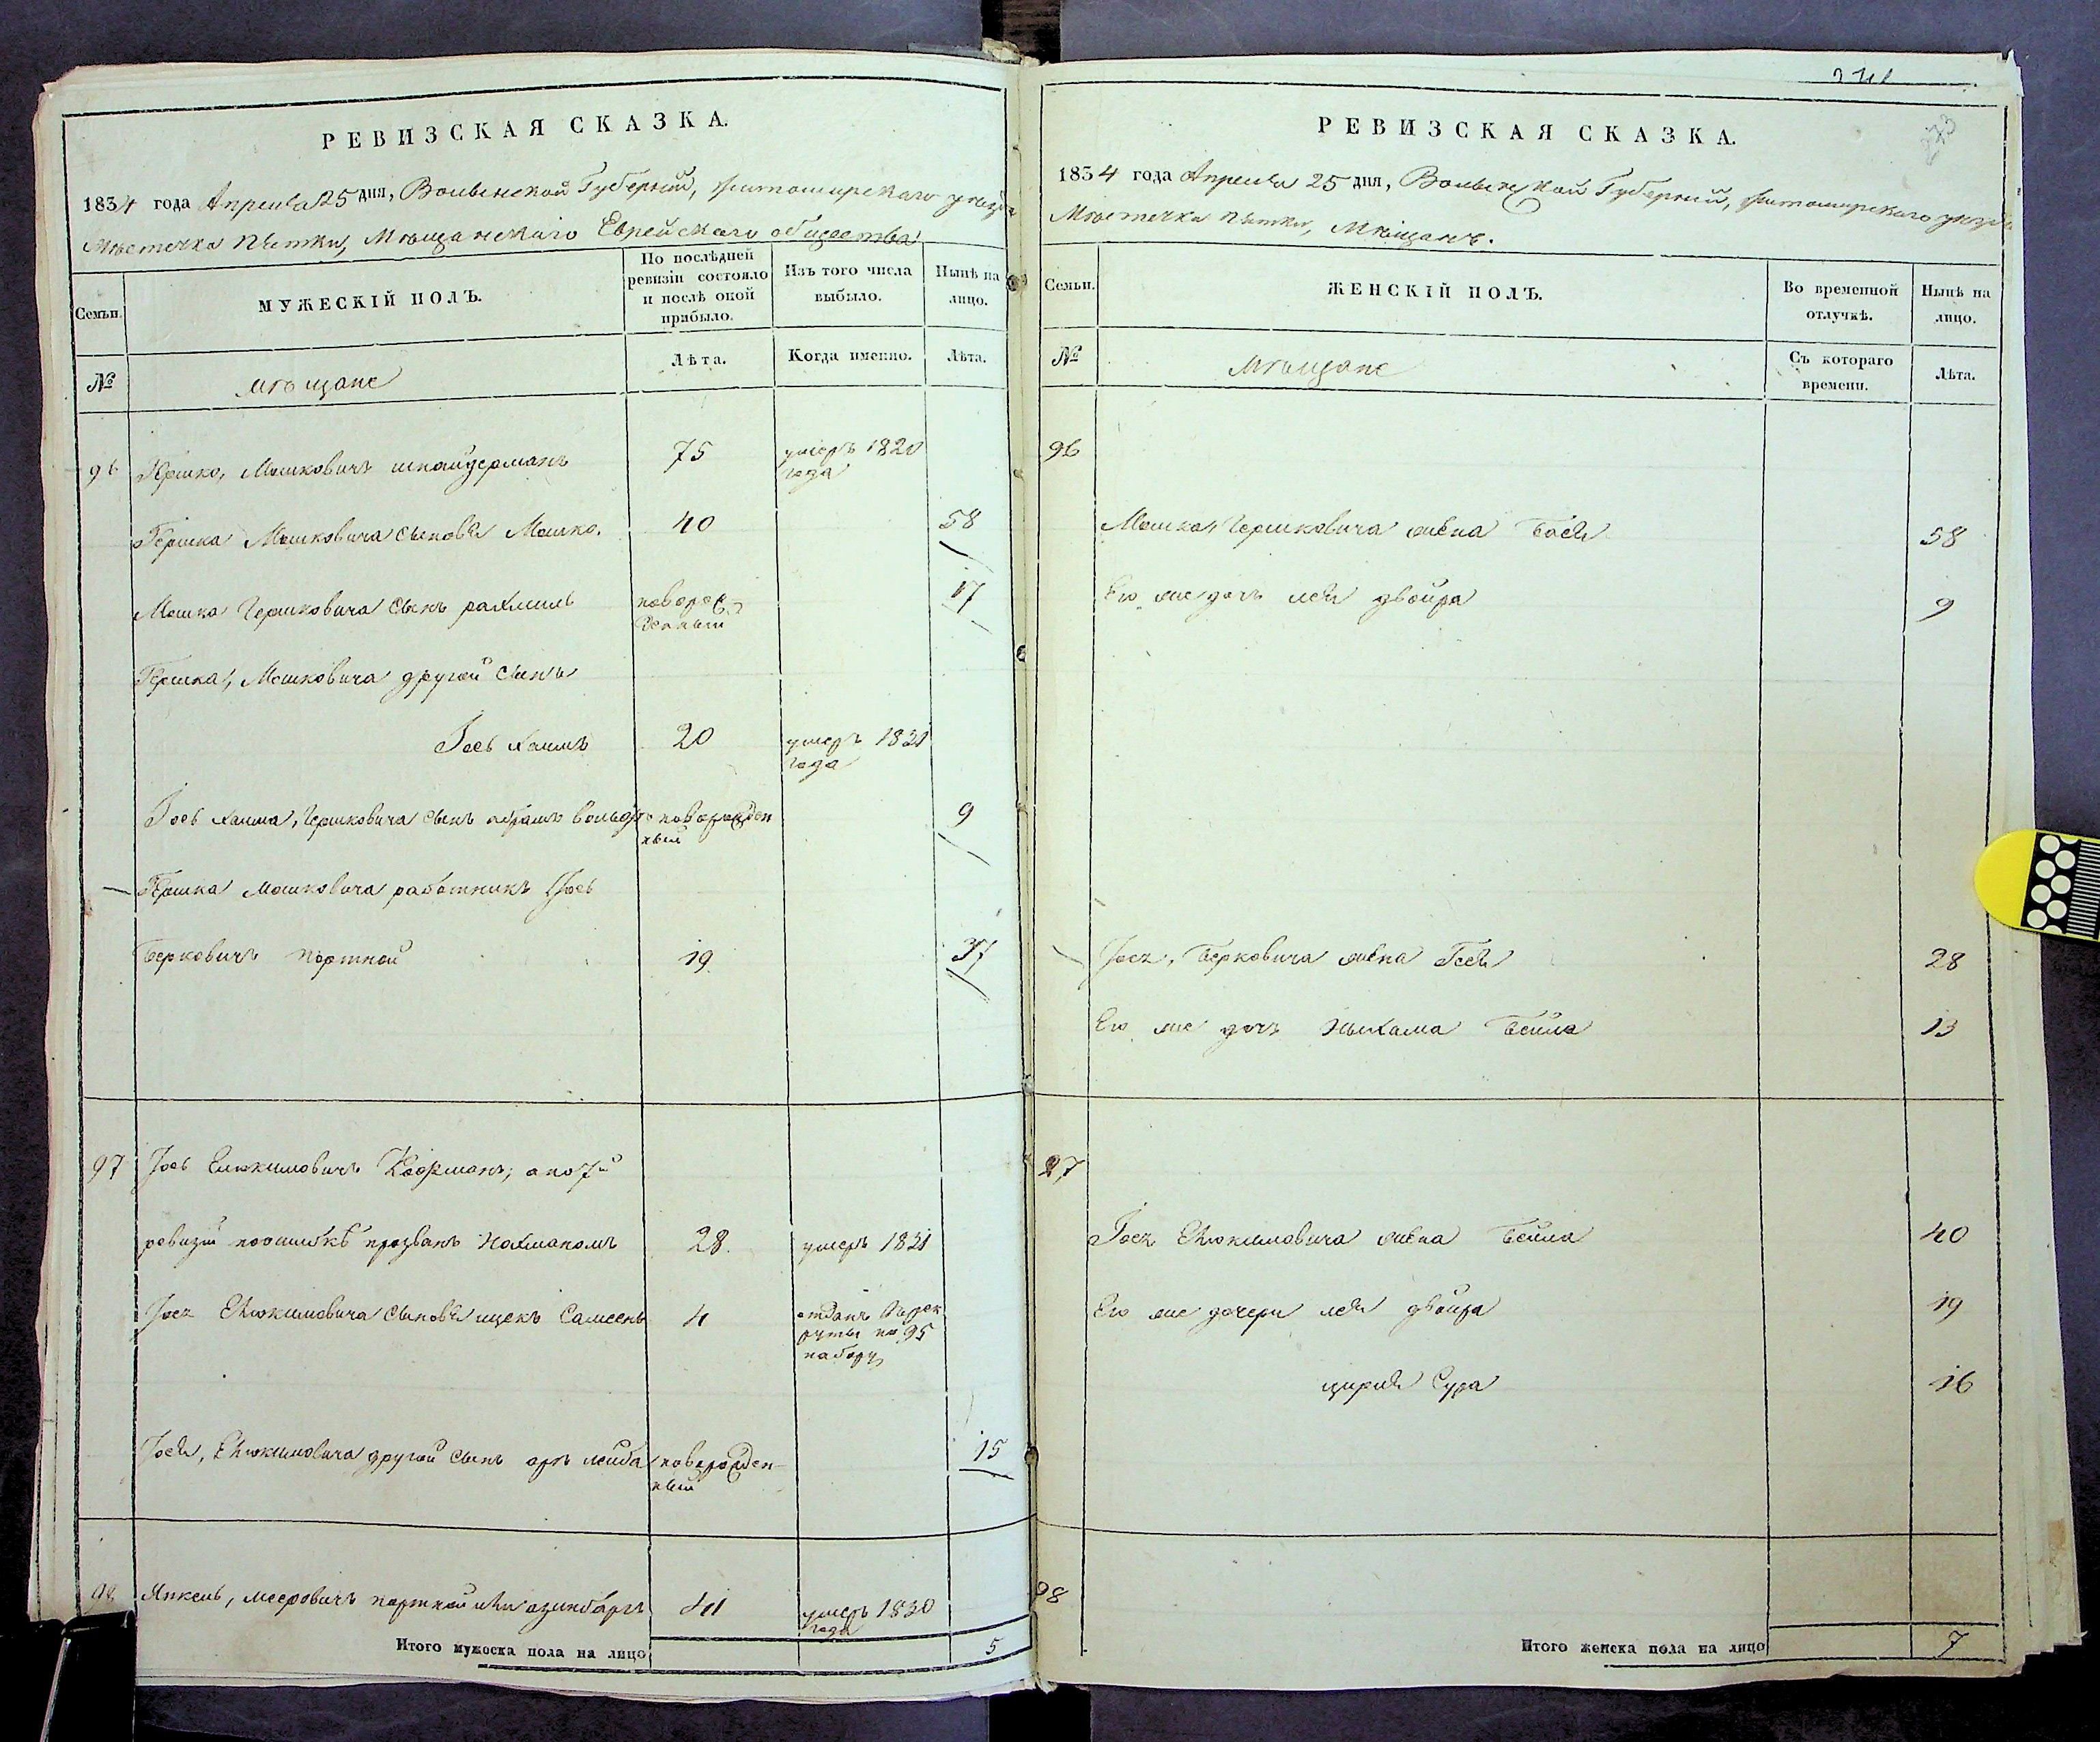 РЕВИЗСКАЯ СКАЗКА.
1834 года Апреля 25 дня, Волынской Губернии, Житомирскаго уезда
Местечка Пятки, Мещанскаго Еврейскаго общества
Семьи.
МУЖЕСКІЙ ПОЛЪ.
По послѣдней ревизіи состояло и послѣ оной прибыло.
Изъ того числа выбыло.
Нынѣ на лицо.
№
мѣщане
Лѣта.
Когда именно.
Лѣта.
96 Гершко, Мошковичъ шнайдерманъ 75 умеръ 1820 года
Гершка Мошковича сыновья Мошко. 40 58
Мошка Гершковича сынъ рахмиль новорожденный 17
Гершка, Мошковича другой сынъ
Іось хаимъ 20 умеръ 1831 года
Іось хаима, Гершковича сынъ абрамъ вольфъ новорожденный 9
Гершка мошковича работникъ Іось
Берковичъ портной 19 37
97 Іось Елюкимовичъ Кофманъ, а по 7й
ревизіи по ошибкѣ прозванъ Нахманомъ 28. умеръ 1831
Іося Елюкимовича сыновья ицекъ Самсонъ 4 отданъ в рекруты по 95 набору
Іося, Елюкимовича другой сынъ аръ лейба новорожденный 15
98 Янкель, мееровичъ портной или 41 умеръ 1830 года
Итого мужеска пола на лицо 5
РЕВИЗСКАЯ СКАЗКА.
273
1834 года Апреля 25 дня, Волынской Губернии, Житомирскаго уезда
Местечка Пятки, Мѣщанъ.
Семьи.
ЖЕНСКІЙ ПОЛЪ.
Во временной отлучкѣ.
Нынѣ на лицо.
№
мѣщане
Съ котораго времени.
Лѣта.
96
Мошка, Гершковича жена Бася 58
Его же дочь лея двойра 9
Іося, Берковича жена Гося 28
Его же дочь Ныхама Бейла 13
97
Іося Елюкимовича жена Бейла 40
Его же дочери лея двойра 19
цирля Сура 16
98
Итого женска пола на лицо 7